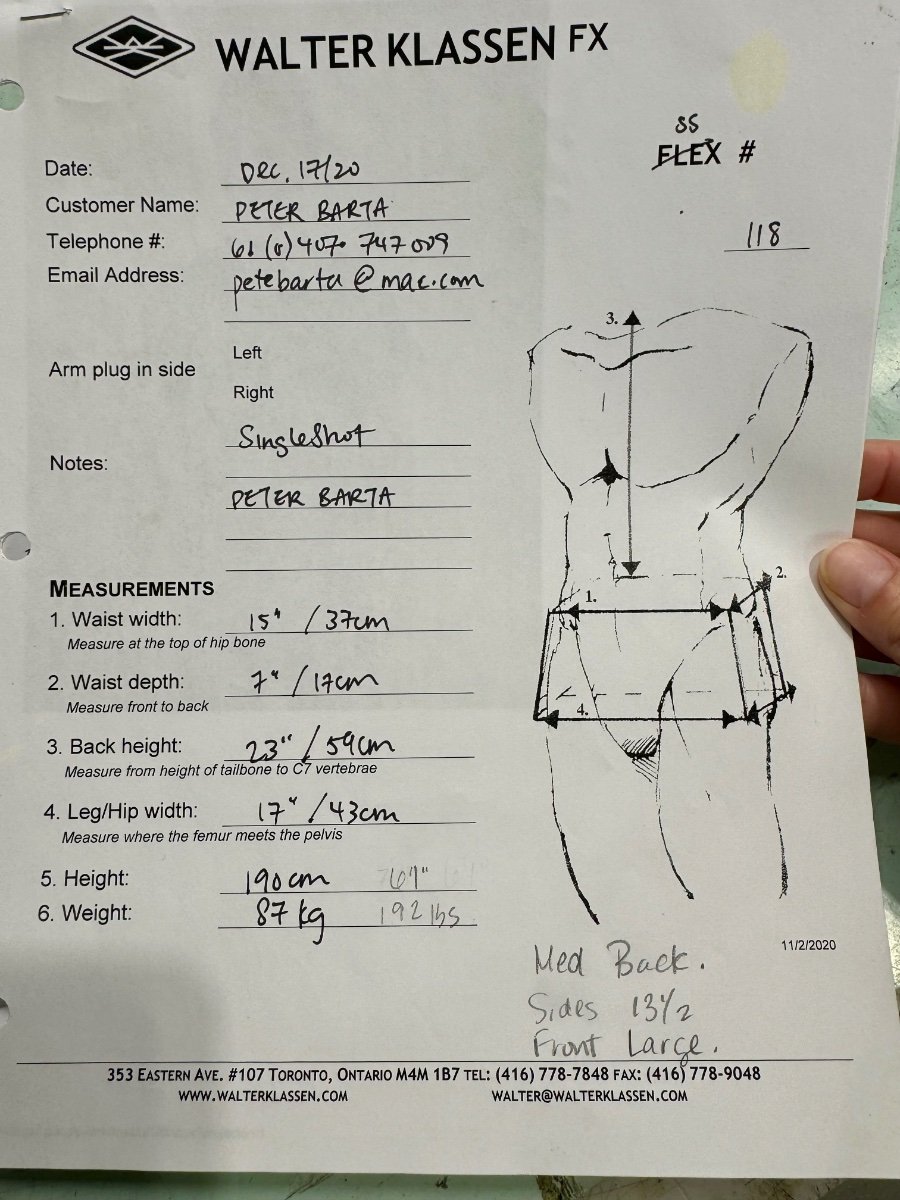 WALTER KLASSEN FX
SS
FLEX #
118
Date: Dec. 17/20
Customer Name: PETER BARTA
Telephone #: 61 (0) 407 747 009
Email Address: petebarta@mac.com
Arm plug in side
Left
Right
Notes:
SingleShot
PETER BARTA
MEASUREMENTS
1. Waist width: 15" / 37cm
Measure at the top of hip bone
2. Waist depth: 7" / 17cm
Measure front to back
3. Back height: 23" / 59cm
Measure from height of tailbone to C7 vertebrae
4. Leg/Hip width: 17" / 43cm
Measure where the femur meets the pelvis
5. Height: 190cm
6. Weight: 87 kg 192 lbs
3.
1.
2.
4.
11/2/2020
Med Back.
Sides 13 1/2
Front Large.
353 EASTERN AVE. #107 TORONTO, ONTARIO M4M 1B7 TEL: (416) 778-7848 FAX: (416) 778-9048
WWW.WALTERKLASSEN.COM WALTER@WALTERKLASSEN.COM